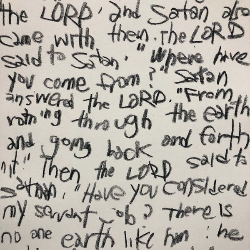 the LORD, and Satan also
came with them. the LORD
said to Satan, "Where have
you come from?" Satan
answerd the LORD, "From
through the earth
and going back and forth
in it" Then the LORD said to
Satan, "Have you considered
my servant Job? There is
no one earth like him: he